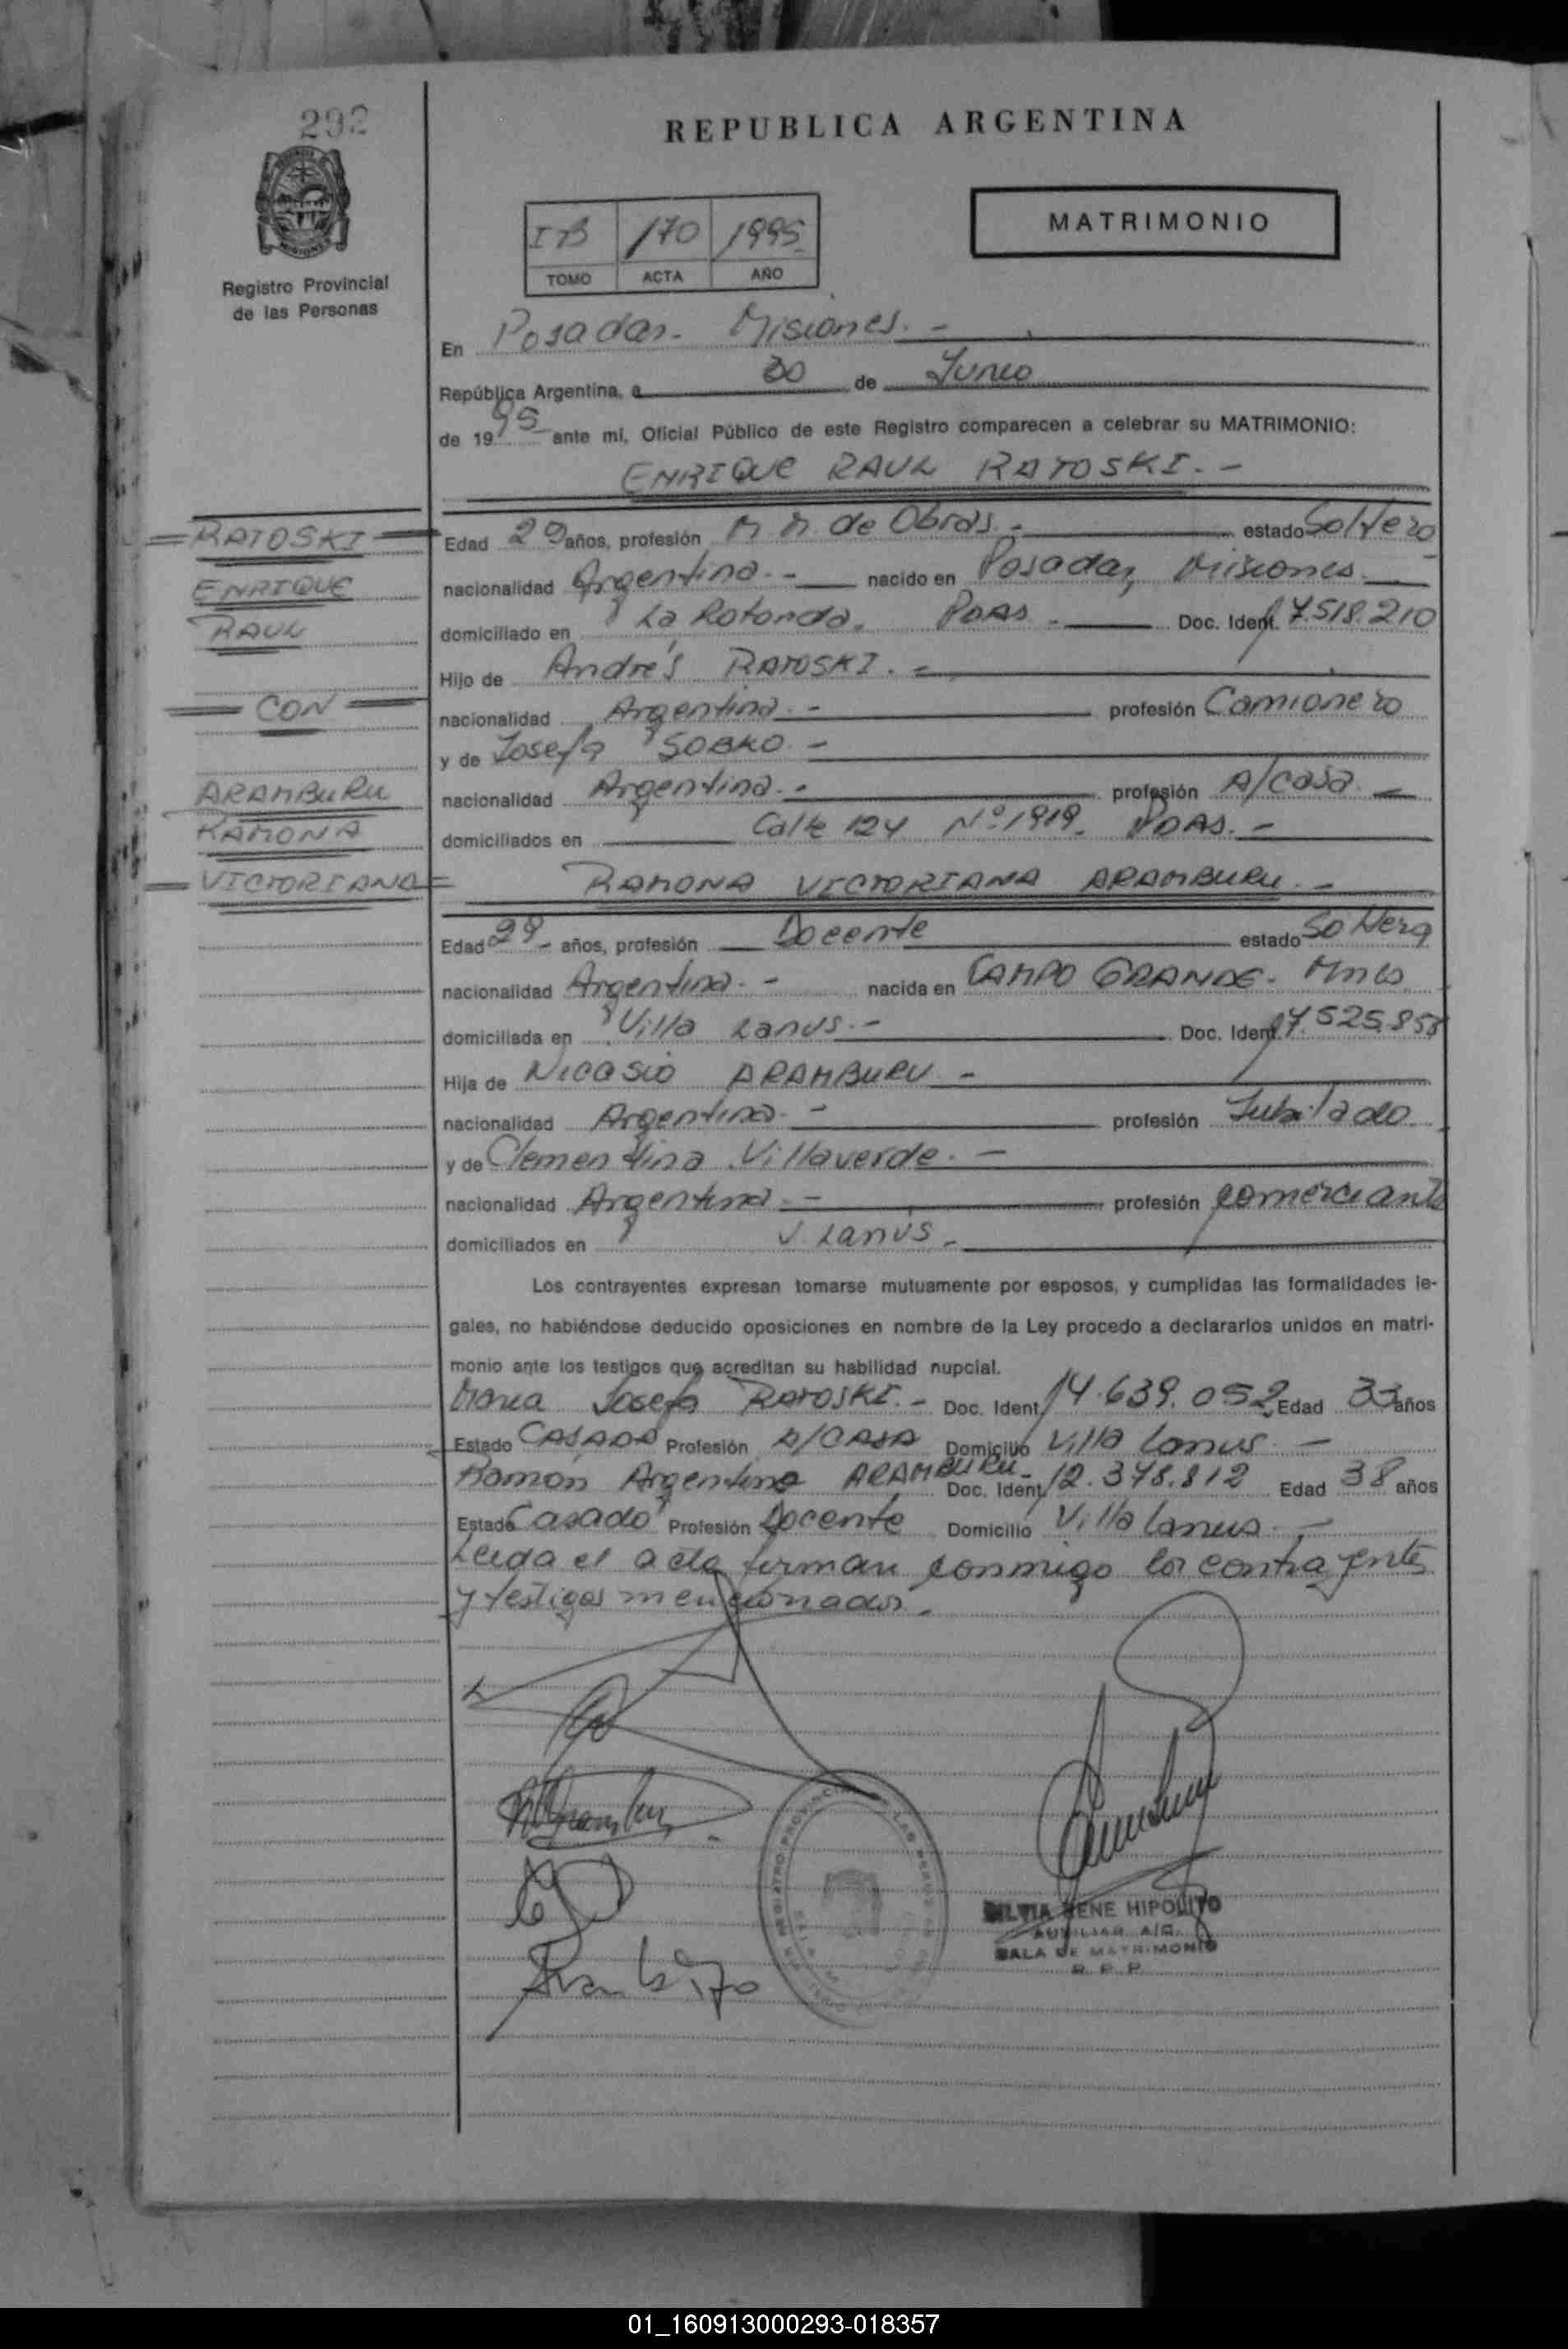 292
REPUBLICA ARGENTINA
MATRIMONIO
170 1995
TOMO ACTA AÑO
Registro Provincial
de las Personas
En Posadas - Misiones. -
República Argentina, a 30 de Junio
de 1995 ante mí, Oficial Público de este Registro comparecen a celebrar su MATRIMONIO:
ENRIQUE RAUL RATOSKI. -
RATOSKI
ENRIQUE
RAUL
CON
ARAMBURU
RAMONA
VICTORIANA
Edad 29 años, profesión M. M. de Obras. - estado Soltero
nacionalidad Argentina. - nacido en Posadas, Misiones.
domiciliado en La Rotonda. PDAS. - Doc. Ident. 17.518.210
Hijo de Andrés RATOSKI. -
nacionalidad Argentina. - profesión Camionero
y de Josefa SOBKO. -
nacionalidad Argentina. - profesión A/casa. -
domiciliados en Calle 124 Nº 1919. PDAS. -
RAMONA VICTORIANA ARAMBURU. -
Edad 29 - años, profesión Docente estado Soltera
nacionalidad Argentina. - nacida en CAMPO GRANDE - Mnes
domiciliada en Villa Lanus. - Doc. Ident. 17.525.858
Hija de Nicasio ARAMBURU -
nacionalidad Argentina. - profesión Jubilado
y de Clementina Villaverde. -
nacionalidad Argentina. - profesión comerciante
domiciliados en V. Lanús. -
Los contrayentes expresan tomarse mutuamente por esposos, y cumplidas las formalidades le-
gales, no habiéndose deducido oposiciones en nombre de la Ley procedo a declararlos unidos en matri-
monio ante los testigos que acreditan su habilidad nupcial.
Maria Josefa RATOSKI. - Doc. Ident. 14.639.052 Edad 33 años
Estado CASADA Profesión A/CASA Domicilio Villa Lanus. -
Ramón Argentino ARAMBURU - Doc. Ident. 12.378.812 Edad 38 años
Estado Casado Profesión Docente Domicilio Villa Lanus. -
Leida el acta firman conmigo los contrayentes
y testigos mencionados. -
SILVIA IRENE HIPOLITO
AUXILIAR A/C.
SALA DE MATRIMONIO
R. P. P.
01_160913000293-018357